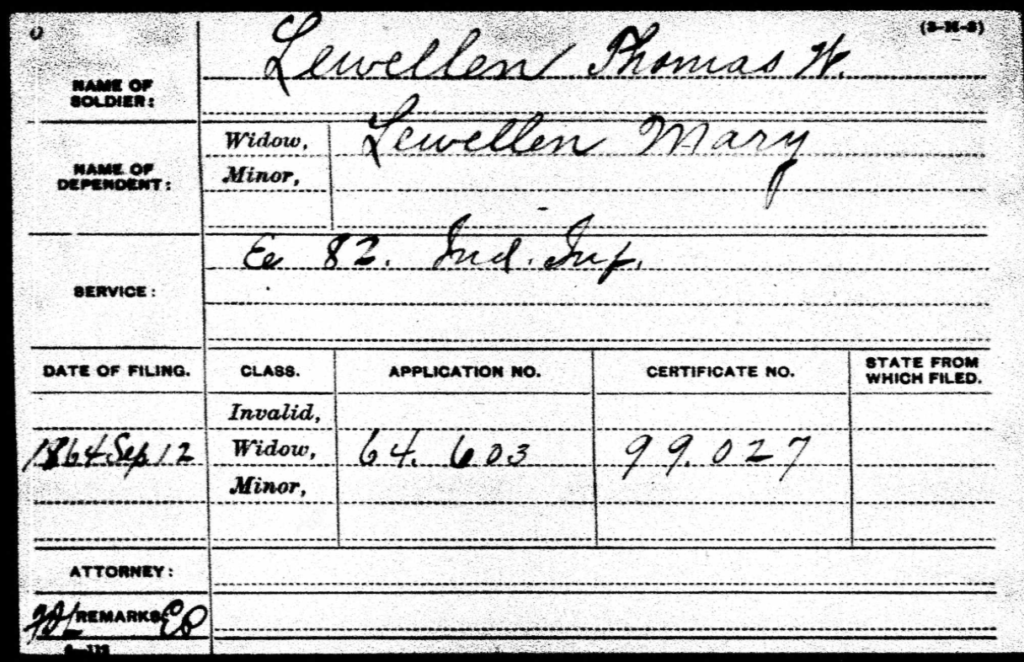 (3-H-3)
NAME OF SOLDIER: Lewellen Thomas W.
NAME OF DEPENDENT: Widow, Lewellen Mary
Minor,
SERVICE: 82. Ind. Inf.
DATE OF FILING. CLASS. APPLICATION NO. CERTIFICATE NO. STATE FROM WHICH FILED.
Invalid,
1864 Sep 12 Widow, 64.603 99.027
Minor,
ATTORNEY:
REMARKS: